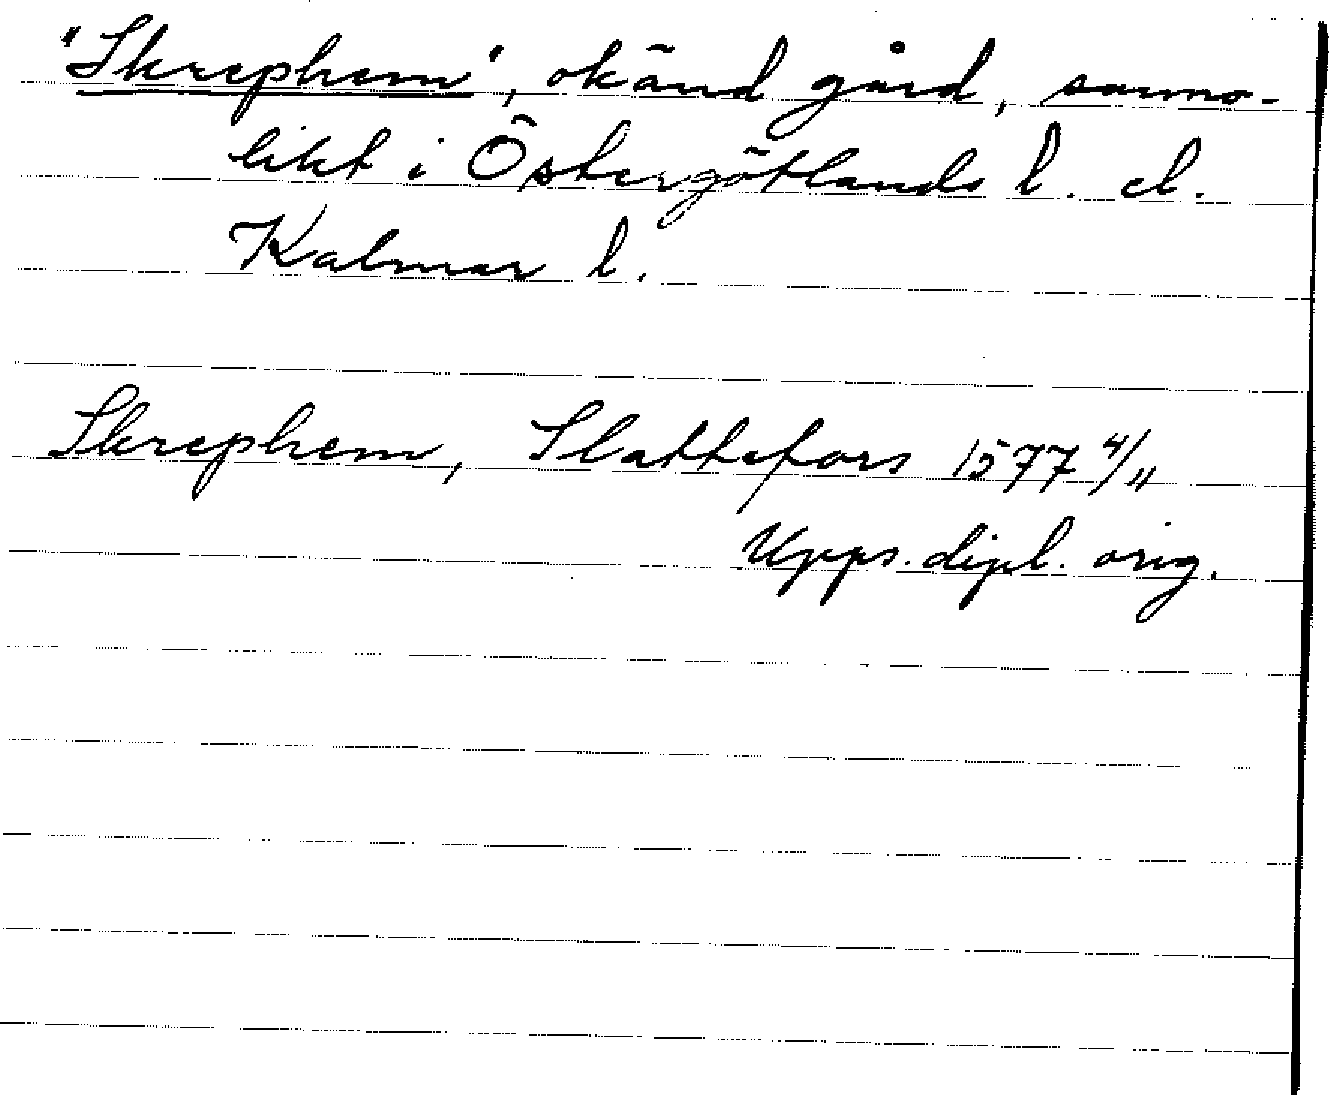 "Skrephem", okänd gård, sanno-
likt i Östergötlands l. el.
Kalmar l.
Skrephem, Slattefors 1577 4/11
Upps. dipl. orig.